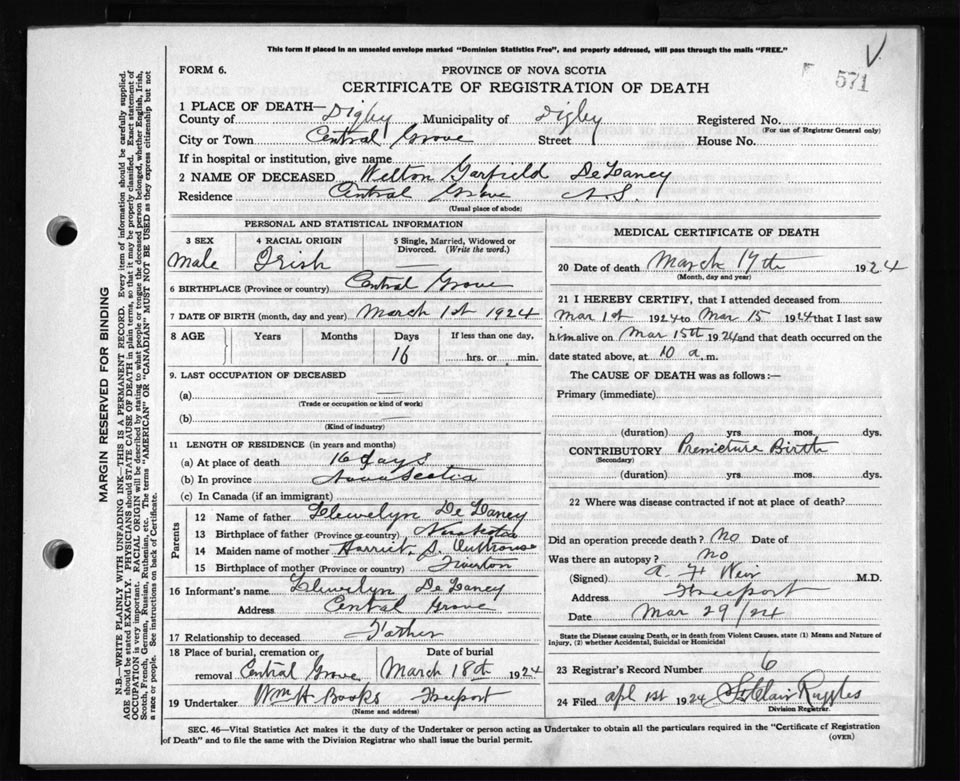 This form if placed in an unsealed envelope marked "Dominion Statistics Free", and properly addressed, will pass through the mails "FREE."
V
571
FORM 6.
PROVINCE OF NOVA SCOTIA
CERTIFICATE OF REGISTRATION OF DEATH
1 PLACE OF DEATH—
County of Digby Municipality of Digby Registered No.
(For use of Registrar General only)
City or Town Central Grove Street House No.
If in hospital or institution, give name
2 NAME OF DECEASED Welton Garfield DeLaney
Residence Central Grove N.S.
(Usual place of abode)
PERSONAL AND STATISTICAL INFORMATION
3 SEX 4 RACIAL ORIGIN 5 Single, Married, Widowed or Divorced. (Write the word.)
Male Irish —
6 BIRTHPLACE (Province or country) Central Grove
7 DATE OF BIRTH (month, day and year) March 1st 1924
8 AGE Years Months Days If less than one day,
16 hrs. or min.
9. LAST OCCUPATION OF DECEASED
(a)
(Trade or occupation or kind of work)
(b)
(Kind of industry)
11 LENGTH OF RESIDENCE (in years and months)
(a) At place of death 16 days
(b) In province Nova Scotia
(c) In Canada (if an immigrant)
Parents
12 Name of father Llewelyn DeLaney
13 Birthplace of father (Province or country) Nova Scotia
14 Maiden name of mother Harriet S. Outhouse
15 Birthplace of mother (Province or country) Tiverton
16 Informant's name Llewelyn DeLaney
Address Central Grove
17 Relationship to deceased Father
18 Place of burial, cremation or removal Date of burial
Central Grove March 18th 1924
19 Undertaker Wm H. Books Freeport
(Name and address)
MEDICAL CERTIFICATE OF DEATH
20 Date of death March 17th 1924
(Month, day and year)
21 I HEREBY CERTIFY, that I attended deceased from
Mar 1st 1924 to Mar 15 1924 that I last saw
him alive on Mar 15th 1924 and that death occurred on the
date stated above, at 10 a. m.
The CAUSE OF DEATH was as follows:—
Primary (immediate)
(duration) yrs. mos. dys.
CONTRIBUTORY Premeture Birth
(Secondary)
(duration) yrs. mos. dys.
22 Where was disease contracted if not at place of death?
Did an operation precede death? No Date of
Was there an autopsy? No
(Signed) A. H Weir M.D.
Address Freeport
Date Mar 29/24
State the Disease causing Death, or in death from Violent Causes, state (1) Means and Nature of
Injury, (2) whether Accidental, Suicidal or Homicidal
23 Registrar's Record Number 6
24 Filed Apl 1st 1924 StClair Ruggles
Division Registrar.
SEC. 46—Vital Statistics Act makes it the duty of the Undertaker or person acting as Undertaker to obtain all the particulars required in the "Certificate of Registration
of Death" and to file the same with the Division Registrar who shall issue the burial permit.
(OVER)
MARGIN RESERVED FOR BINDING
N.B.—WRITE PLAINLY WITH UNFADING INK—THIS IS A PERMANENT RECORD. Every item of information should be carefully supplied.
AGE should be stated EXACTLY. PHYSICIANS should STATE CAUSE OF DEATH in plain terms, so that it may be properly classified. Exact statement of
OCCUPATION is very important. RACIAL ORIGIN will be described by stating to what people or tongue the deceased person belonged, whether English, Irish,
Scotch, French, German, Russian, Ruthenian, etc. The terms "AMERICAN" OR "CANADIAN" MUST NOT BE USED as they express citizenship but not
a race or people. See instructions on back of Certificate.